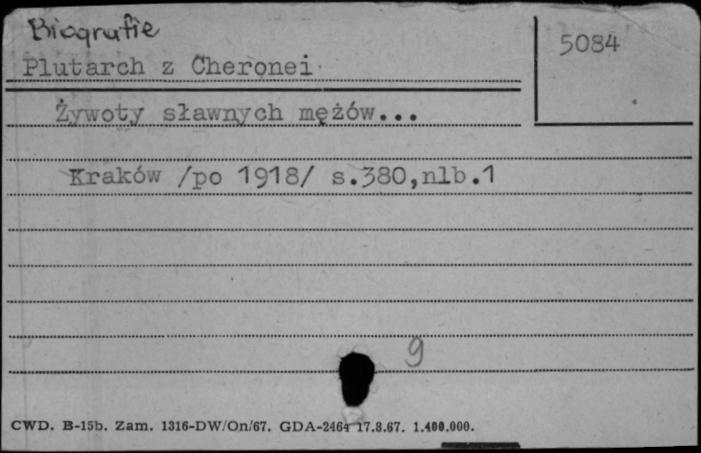 Biografie
5084
Plutarch z Cheronei
Żywoty sławnych mężów...
Kraków /po 1918/ s.380,nlb.1
9
CWD. B-15b. Zam. 1316-DW/On/67. GDA-2464 17.8.67. 1.400.000.